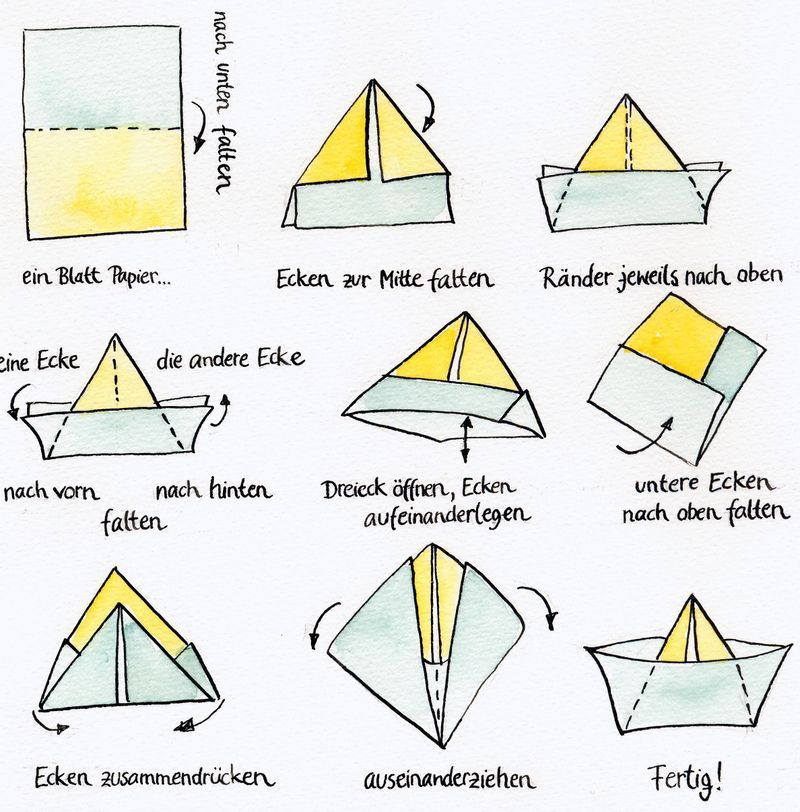 nach unten falten
ein Blatt Papier...
Ecken zur Mitte falten
Ränder jeweils nach oben
eine Ecke
die andere Ecke
nach vorn
nach hinten
falten
Dreieck öffnen, Ecken
aufeinanderlegen
untere Ecken
nach oben falten
Ecken zusammendrücken
auseinanderziehen
Fertig!